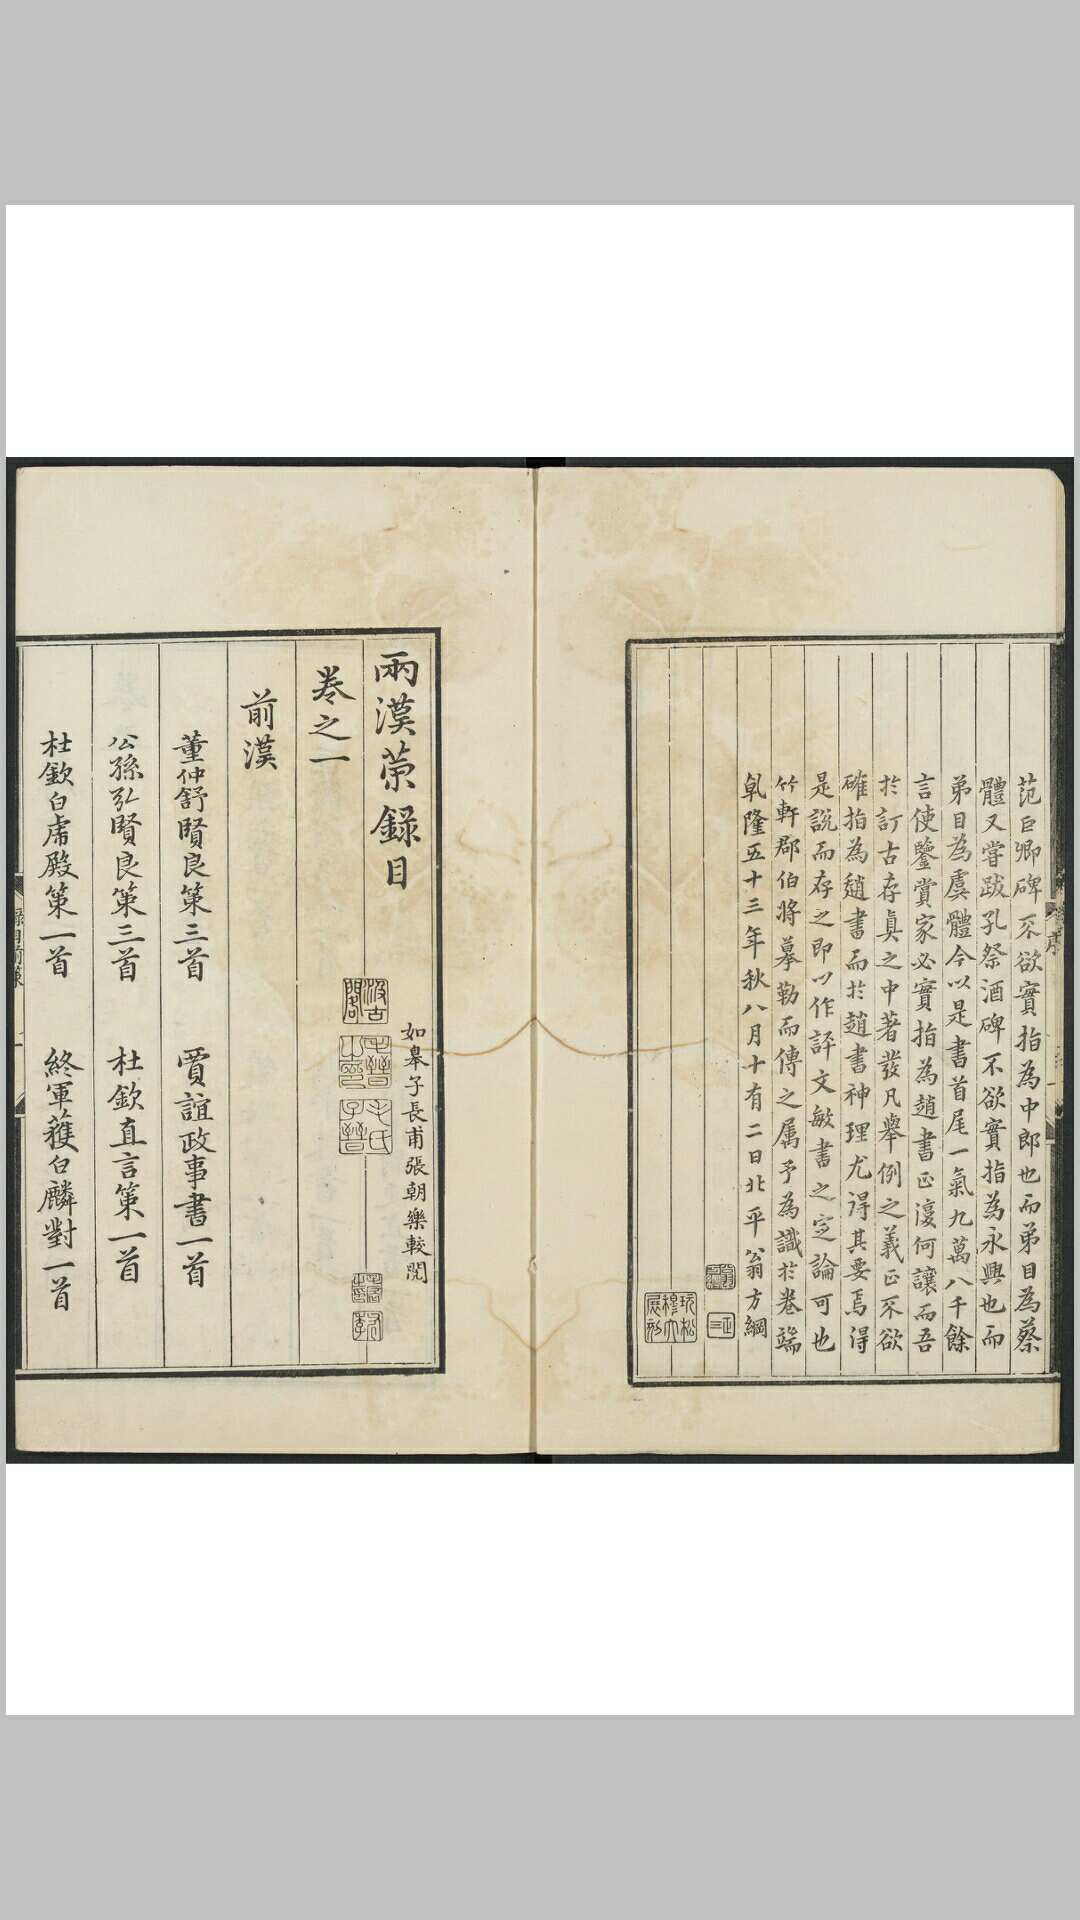 范巨卿碑不欲實指為中郎也而弟目為蔡
體又嘗跋孔祭酒碑不欲實指為永興也而
弟目為虞體今以是書首尾一氣九萬八千餘
言使鑒賞家必實指為趙書正復何讓而吾
於訂古存真之中著發凡舉例之義正不欲
確指為趙書而於趙書神理尤得其要焉得
是說而存之即以作評文敏書之定論可也
竹軒郡伯將摹勒而傳之属予為識於卷端
乹隆五十三年秋八月十有二日北平翁方綱
兩漢策錄目
如皋子長甫張朝樂較閱
汲古閣
毛氏子晉
卷之一
前漢
董仲舒賢良策三首
賈誼政事書一首
公孫弘賢良策三首
杜欽直言策一首
杜欽白虎殿策一首
終軍獲白麟對一首